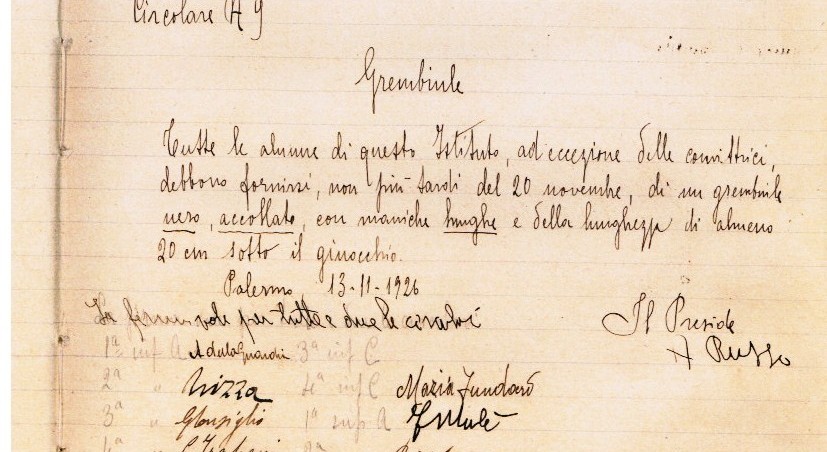 Circolare N 9
Grembiule
Tutte le alunne di questo Istituto, ad eccezione delle convittrici,
debbono fornirsi, non più tardi del 20 novembre, di un grembiule
nero, accollato, con maniche lunghe e della lunghezza di almeno
20 cm sotto il ginocchio.
Palermo, 13-11-1926
La firma vale per tutte e due le circolari
Il Preside
A Russo
1ª inf A 3ª inf C
2ª " Nizza 4ª inf C Maria Fundarò
3ª " 1ª sup A
4ª " 2ª